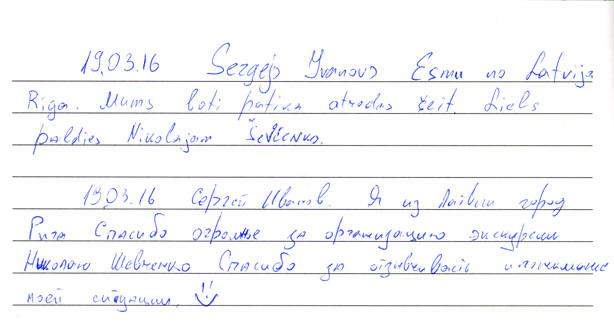 19.03.16 Sergejs Ivanovs Esmu no Latvija
Riga. Mums loti patika atrodas šeit. Liels
paldies Nikolajam Ševčenko.
19.03.16 Сергей Иванов. Я из Латвии город
Рига Спасибо огромное за организацию экскурсии
Николаю Шевченко Спасибо за отзывчивость и понимание
моей ситуации.